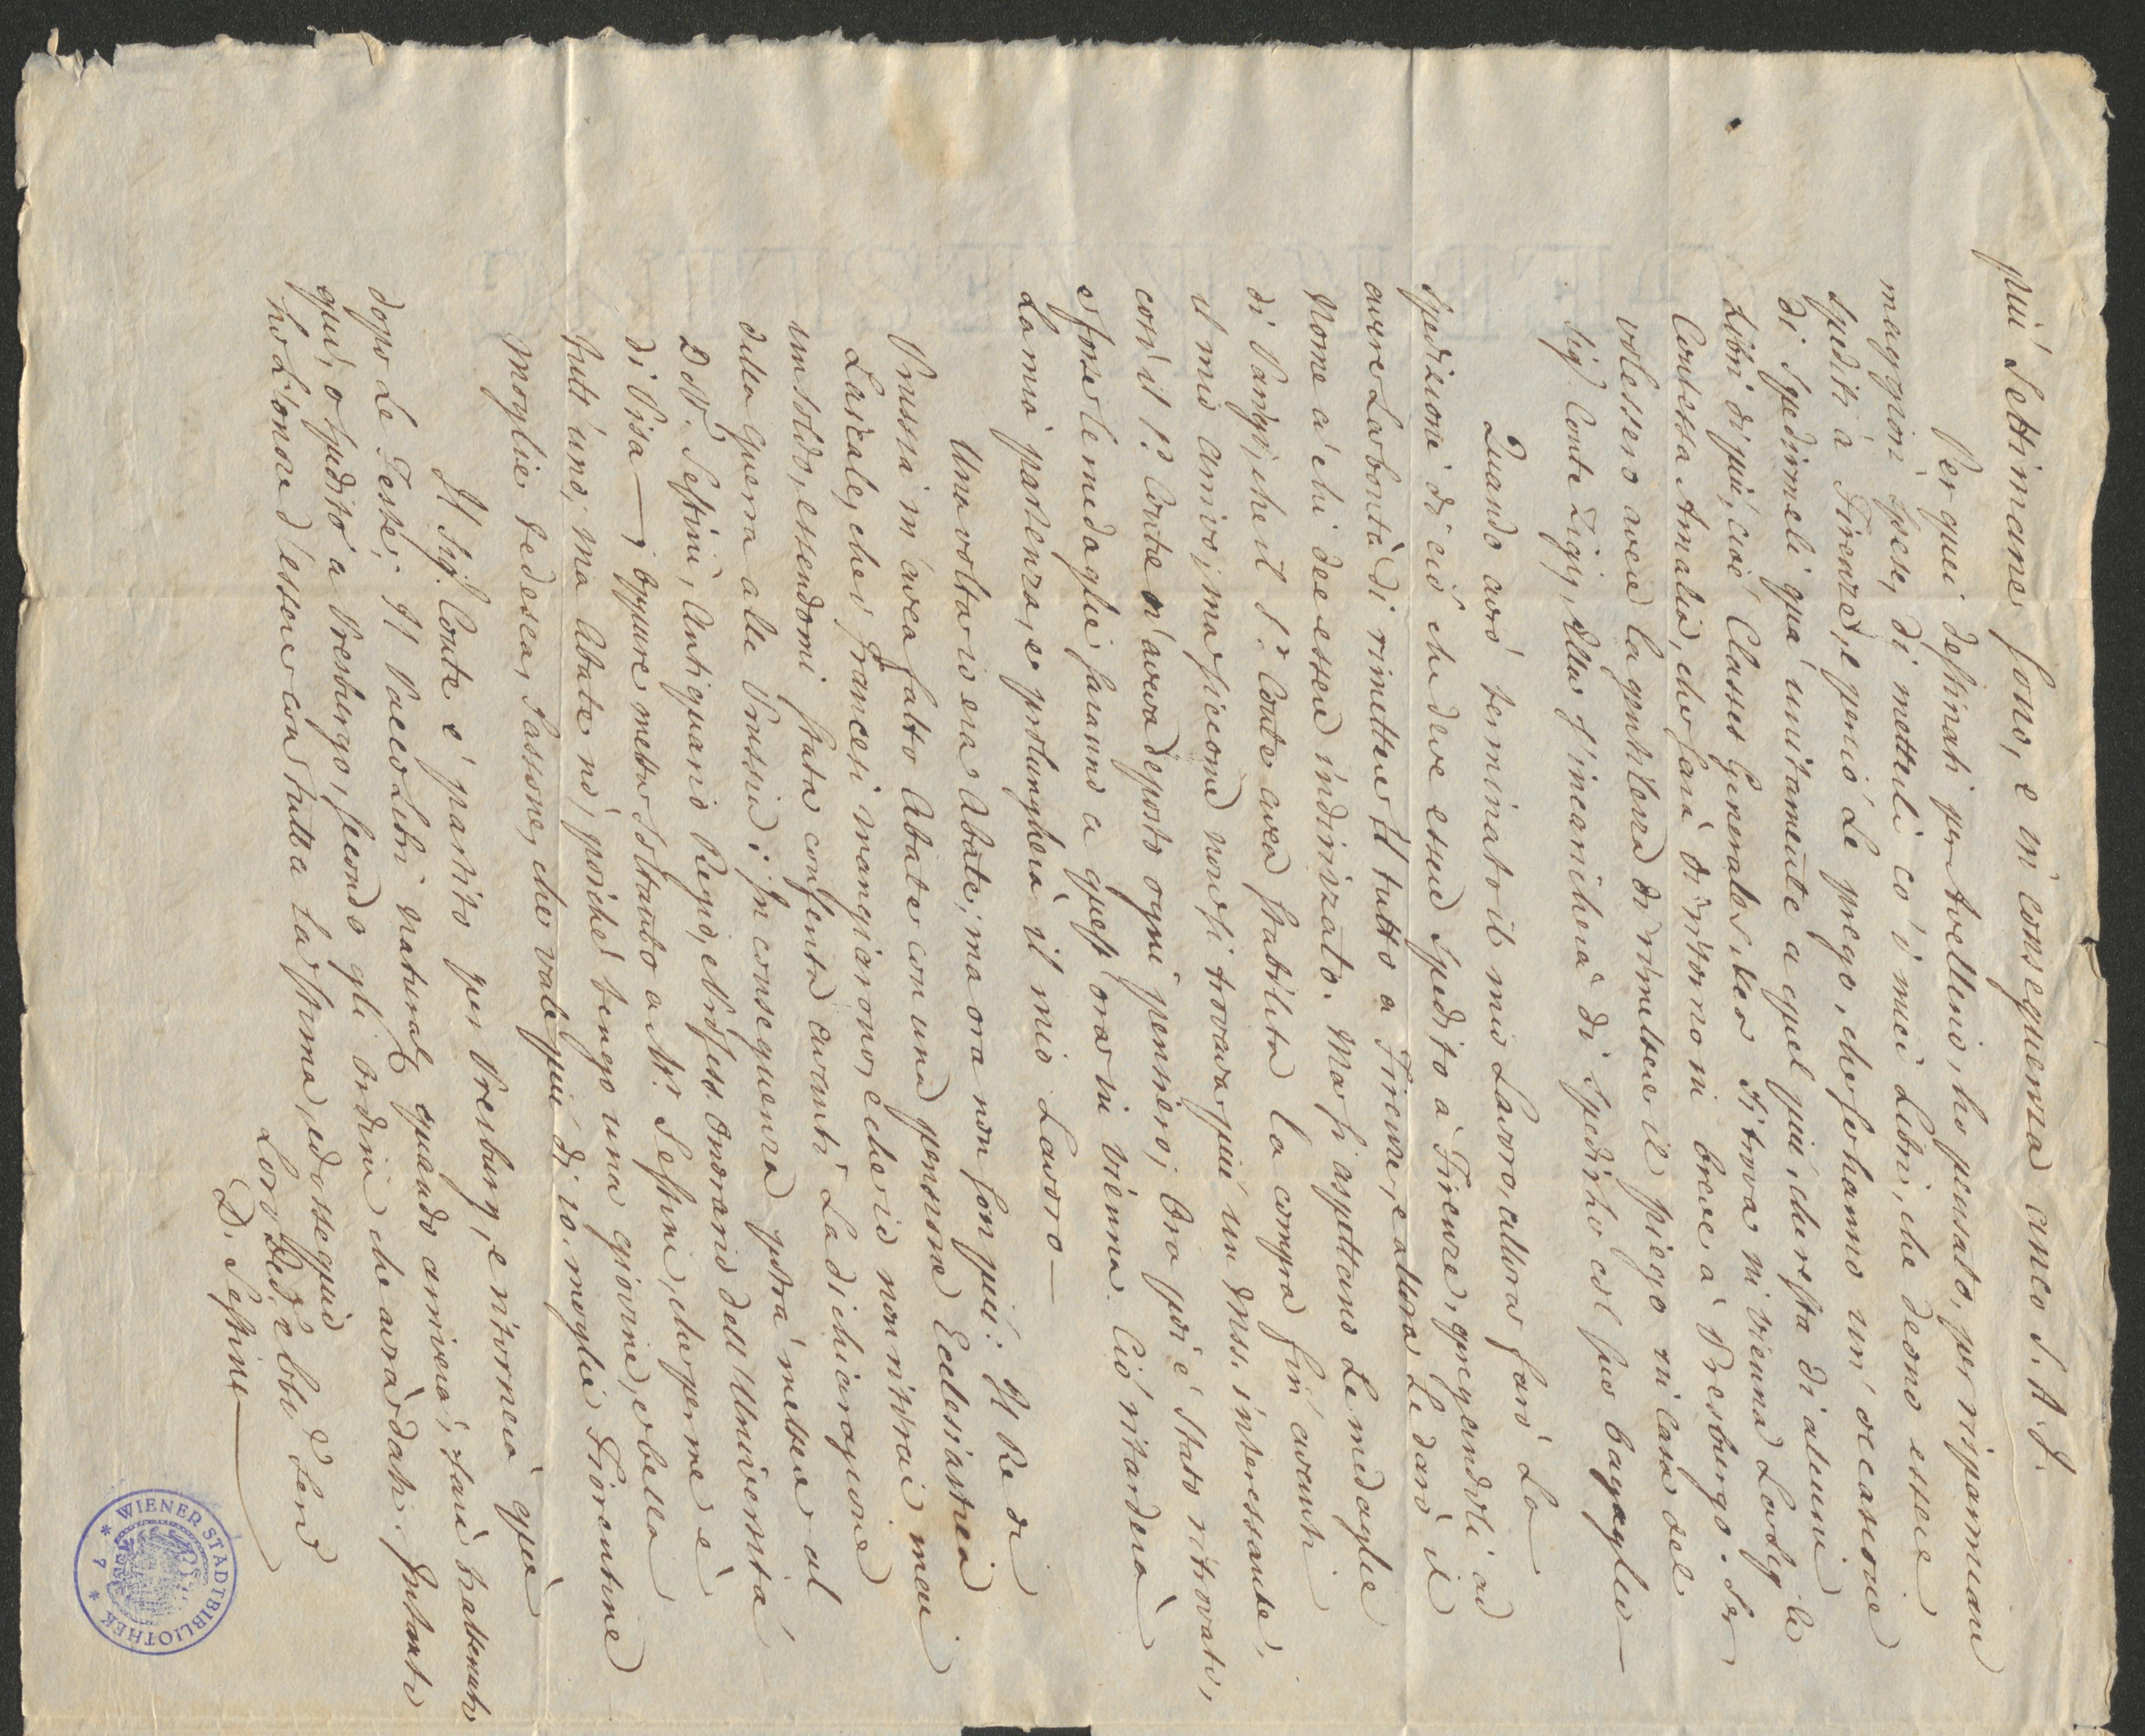 più Settimane sono, e in conseguenza anco S. A. I.
Per quei destinati per Avellino, ho pensato, per risparmiare
maggiori spese, di metterli co' i miei Libri, che deono essere
spediti a Firenze, e perciò Le prego, che se hanno un' occasione
di spedirmeli quà unitamente a quel più, che resta di alcuni
Libri di più, cioè Classes Generales etc. Si trova in Vienna
Contessa Amalia, che sarà di ritorno in breve a Presburgo. Se
volessero avere la gentilezza di rimettere il piego in casa del
Sig. Conte Zigy, Ella s'incaricherà di spedirlo col suo bagaglio —
Quando avrò terminato il mio Lavoro, allora farò La
spedizione di ciò che deve essere spedito a Firenze, pregandoli ad
avere La bontà di rimettere il tutto a Firenze, e allora Le darò il
Nome a chi dee essere indirizzato. Ma si aspettano Le medaglie
di Parigi, che il S.r Conte avea stabilita la compra fin' avanti
il mio arrivo, ma siccome non si trovava più un MSS. interessante,
così il S.r Conte n' aveva deposto ogni pensiero; Ora poi è stato ritrovato,
e forse le medaglie saranno a quest' ora in Vienna. Ciò ritarderà
La mia partenza, e prolungherà il mio Lavoro —
Una volta io era Abate; ma ora non son più: Il Re di
Prussia m' avea fatto Abate con una pensione Ecclesiastica
Laicale, che i Francesi mangiarono, e che io non ritirai mai
un soldo, essendomi stata conferita avanti La dichiarazione
della guerra alla Prussia; In conseguenza potrà mettere al
D. N. Sestini, Antiquario Regio, e Profess. Onorario dell' Università
di Pisa —, oppure metta soltanto a N. Sestini, che per me è
tutt' uno; ma Abate nò, poiché tengo una giovine, e bella
Moglie tedesca, Sassone, che vale più di 10. moglie Fiorentine
Il Sig. Conte è partito per Presburg, e ritornerà quà
dopo Le Feste; Il Pacco Libri naturalm. quando arriverà, sarà trattenuto
quì, o spedito a Presburgo, secondo gli ordini che avrà dati. Intanto
ho L'onore d'essere con tutta la stima, ed ossequio
Loro Dev. e Obb. Serv.
D. Sestini
WIENER STADTBIBLIOTHEK
7